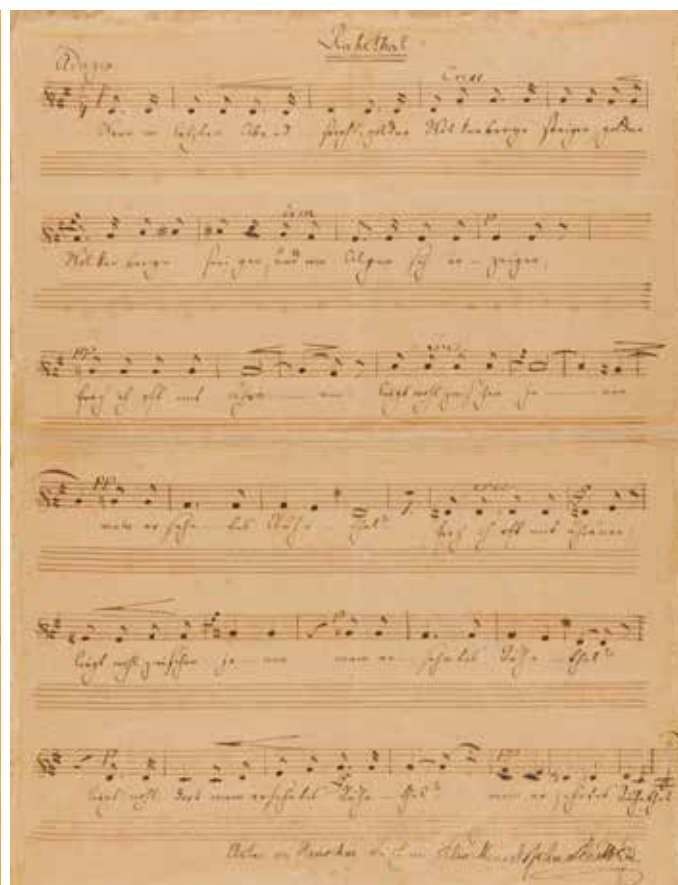 Ruhethal
Adagio
cresc
Wenn im letzten Abend strahl goldne Wolkenberge steigen, goldne
cresc
p
Wolkenberge steigen, und wie Alpen sich er-zeigen,
pp
cresc
frag ich oft mit Thrä - nen liegt wohl zwischen je - nen
pp
cresc
mein ersehn-tes Ruhe thal? frag ich oft mit Thränen
p
liegt wohl zwischen je - nen mein er-sehntes Ruhe-thal?
p
pp
liegt wohl dort mein ersehntes Ruhe thal? mein ersehntes Ruhethal
Felix Mendelssohn Bartholdy